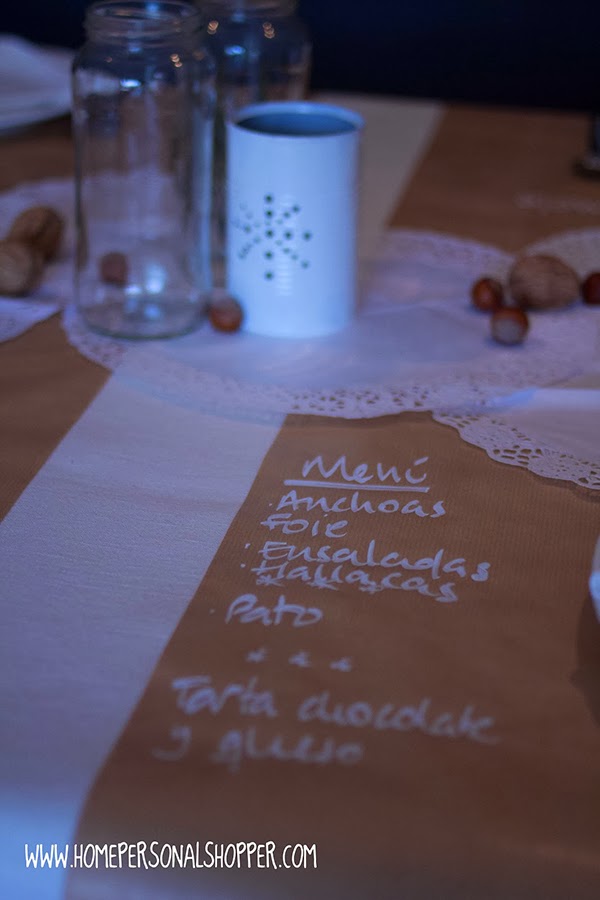 Menú
· Anchoas
Foie
· Ensaladas
· Hallacas
* * * *
· Pato
* * *
Tarta chocolate
y queso
WWW.HOMEPERSONALSHOPPER.COM